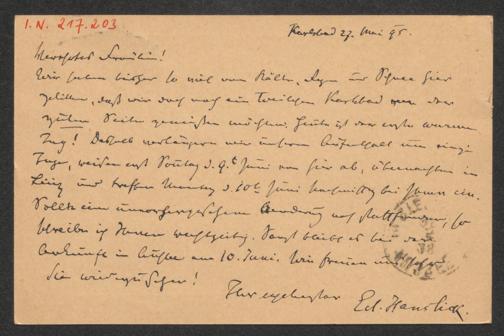 I.N. 217.203
Karlsbad 27. Mai 95.
Verehrtes Fräulein!
Wir haben bisher so viel von Kälte, Regen und Schnee hier
gelitten, daß wir doch noch ein Weilchen Karlsbad von der
guten Seite genießen möchten. Heute ist der erste warme
Tag! Deshalb verlängern wir unseren Aufenthalt um einige
Tage, reisen erst Sonntag d. 9t Juni von hier ab, übernachten in
Linz und treffen Montag d. 10t Juni nachmittag bei Ihnen ein.
Sollte eine unvorhergesehene Änderung noch stattfinden, so
schreibe ich Ihnen rechtzeitig. Sonst bleibt es bei der
Ankunft in Aussee am 10. Juni. Wir freuen uns
Sie wiederzusehen!
Ihr ergebenster
Ed. Hanslick.